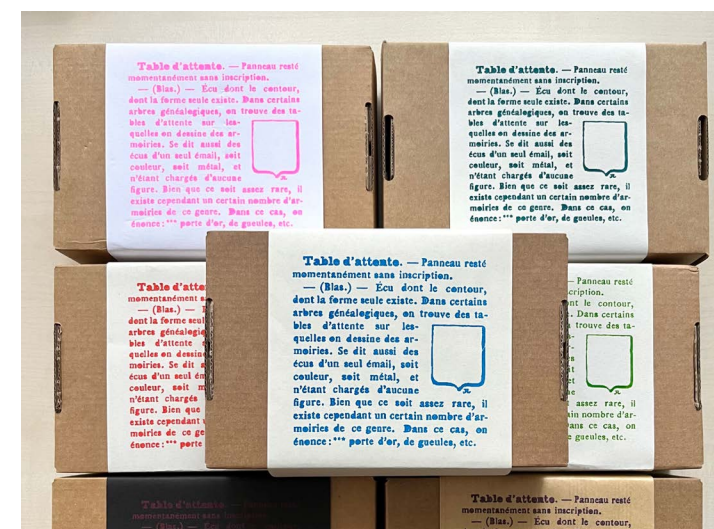 Table d'attente. — Panneau resté
momentanément sans inscription.
— (Blas.) — Écu dont le contour,
dont la forme seule existe. Dans certains
arbres généalogiques, on trouve des ta-
bles d'attente sur les-
quelles on dessine des ar-
moiries. Se dit aussi des
écus d'un seul émail, soit
couleur, soit métal, et
n'étant chargés d'aucune
figure. Bien que ce soit assez rare, il
existe cependant un certain nombre d'ar-
moiries de ce genre. Dans ce cas, on
énonce : *** porte d'or, de gueules, etc.
Table d'attente. — Panneau resté
momentanément sans inscription.
— (Blas.) — Écu dont le contour,
dont la forme seule existe. Dans certains
arbres généalogiques, on trouve des ta-
bles d'attente sur les-
quelles on dessine des ar-
moiries. Se dit aussi des
écus d'un seul émail, soit
couleur, soit métal, et
n'étant chargés d'aucune
figure. Bien que ce soit assez rare, il
existe cependant un certain nombre d'ar-
moiries de ce genre. Dans ce cas, on
énonce : *** porte d'or, de gueules, etc.
Table d'atte
momentanément s
— (Blas.) —
dont la forme seul
arbres généalogi
bles d'attente
quelles on dessin
moiries. Se dit a
écus d'un seul ém
couleur, soit m
n'étant chargés
figure. Bien que
existe cependant
moiries de ce ge
énonce : *** porte
Table d'attente. — Panneau resté
momentanément sans inscription.
— (Blas.) — Écu dont le contour,
dont la forme seule existe. Dans certains
arbres généalogiques, on trouve des ta-
bles d'attente sur les-
quelles on dessine des ar-
moiries. Se dit aussi des
écus d'un seul émail, soit
couleur, soit métal, et
n'étant chargés d'aucune
figure. Bien que ce soit assez rare, il
existe cependant un certain nombre d'ar-
moiries de ce genre. Dans ce cas, on
énonce : *** porte d'or, de gueules, etc.
— Panneau resté
cription.
nt le contour,
. Dans certains
trouve des ta-
assez rare, il
ain nombre d'ar-
ans ce cas, on
e gueules, etc.
Table d'attente. — Panneau resté
momentanément sans inscription.
— (Blas.) — Écu dont le contour,
Table d'attente. — Panneau resté
momentanément sans inscription.
— (Blas.) — Écu dont le contour,